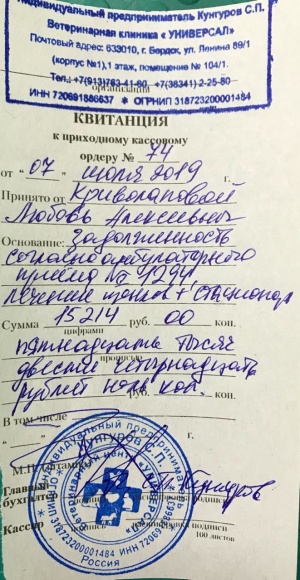 Индивидуальный предприниматель Кунгуров С.П.
Ветеринарная клиника « УНИВЕРСАЛ»
Почтовый адрес: 633010, г. Бердск, ул. Ленина 89/1
(корпус №1),1 этаж, помещение № 104/1.
Тел.: +7(913)763-41-80, +7(38341) 2-25-80
организация
ИНН 720691886637 ★ ОГРНИП 318723200001484
КВИТАНЦИЯ
к приходному кассовому
ордеру № 74
от "07" июля 2019 г.
Принято от Криволаповой
Любовь Алексеевны
Основание: Задолженность
согласно амбулаторного
приема № 1294
лечение щенков + стационар
Сумма 15214 руб. 00 коп.
цифрами
пятнадцать тысяч
прописью
двести четырнадцать
рублей ноль коп.
В том числе
" "
М.П. (штампа)
Главный
бухгалтер
С.П. Кунгуров
подпись расшифровка подписи
Кассир
подпись расшифровка подписи
100 листов
Индивидуальный предприниматель
Кунгуров С.П.
Ветеринарный центр «Универсал»
ОГРНИП 318723200001484 ИНН 720691886637
Россия